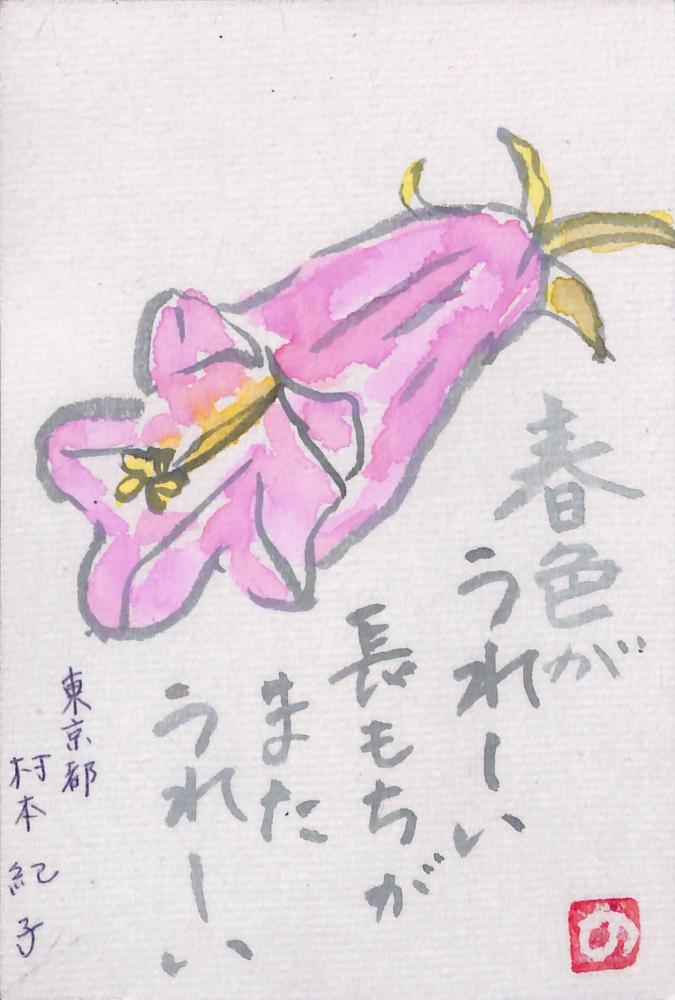 春色が
うれーい
長もちが
また
うれーい
東京都
村本紀子
の